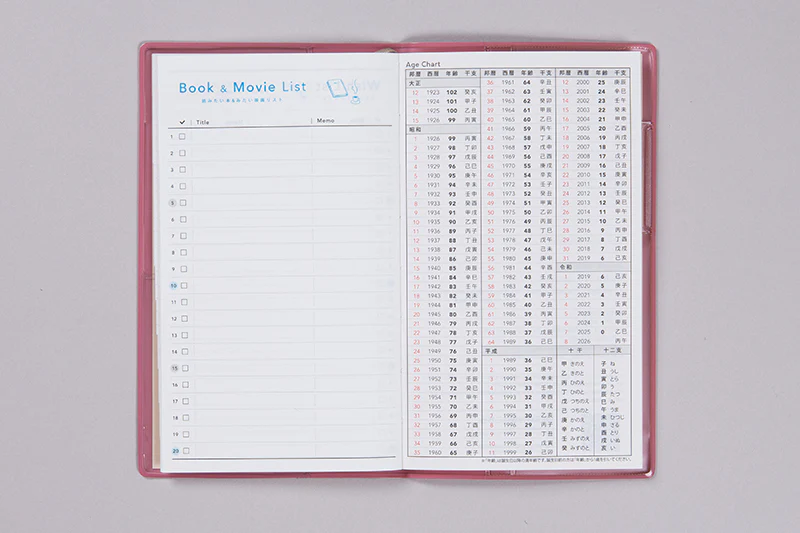 Book & Movie List
読みたい本&みたい映画リスト
✓ Title Memo
1
2
3
4
5
6
7
8
9
10
11
12
13
14
15
16
17
18
19
20
Age Chart
邦暦 西暦 年齢 干支
大正
12 1923 102 癸亥
13 1924 101 甲子
14 1925 100 乙丑
15 1926 99 丙寅
昭和
1 1926 99 丙寅
2 1927 98 丁卯
3 1928 97 戊辰
4 1929 96 己巳
5 1930 95 庚午
6 1931 94 辛未
7 1932 93 壬申
8 1933 92 癸酉
9 1934 91 甲戌
10 1935 90 乙亥
11 1936 89 丙子
12 1937 88 丁丑
13 1938 87 戊寅
14 1939 86 己卯
15 1940 85 庚辰
16 1941 84 辛巳
17 1942 83 壬午
18 1943 82 癸未
19 1944 81 甲申
20 1945 80 乙酉
21 1946 79 丙戌
22 1947 78 丁亥
23 1948 77 戊子
24 1949 76 己丑
25 1950 75 庚寅
26 1951 74 辛卯
27 1952 73 壬辰
28 1953 72 癸巳
29 1954 71 甲午
30 1955 70 乙未
31 1956 69 丙申
32 1957 68 丁酉
33 1958 67 戊戌
34 1959 66 己亥
35 1960 65 庚子
邦暦 西暦 年齢 干支
36 1961 64 辛丑
37 1962 63 壬寅
38 1963 62 癸卯
39 1964 61 甲辰
40 1965 60 乙巳
41 1966 59 丙午
42 1967 58 丁未
43 1968 57 戊申
44 1969 56 己酉
45 1970 55 庚戌
46 1971 54 辛亥
47 1972 53 壬子
48 1973 52 癸丑
49 1974 51 甲寅
50 1975 50 乙卯
51 1976 49 丙辰
52 1977 48 丁巳
53 1978 47 戊午
54 1979 46 己未
55 1980 45 庚申
56 1981 44 辛酉
57 1982 43 壬戌
58 1983 42 癸亥
59 1984 41 甲子
60 1985 40 乙丑
61 1986 39 丙寅
62 1987 38 丁卯
63 1988 37 戊辰
64 1989 36 己巳
平成
1 1989 36 己巳
2 1990 35 庚午
3 1991 34 辛未
4 1992 33 壬申
5 1993 32 癸酉
6 1994 31 甲戌
7 1995 30 乙亥
8 1996 29 丙子
9 1997 28 丁丑
10 1998 27 戊寅
11 1999 26 己卯
邦暦 西暦 年齢 干支
12 2000 25 庚辰
13 2001 24 辛巳
14 2002 23 壬午
15 2003 22 癸未
16 2004 21 甲申
17 2005 20 乙酉
18 2006 19 丙戌
19 2007 18 丁亥
20 2008 17 戊子
21 2009 16 己丑
22 2010 15 庚寅
23 2011 14 辛卯
24 2012 13 壬辰
25 2013 12 癸巳
26 2014 11 甲午
27 2015 10 乙未
28 2016 9 丙申
29 2017 8 丁酉
30 2018 7 戊戌
31 2019 6 己亥
令和
1 2019 6 己亥
2 2020 5 庚子
3 2021 4 辛丑
4 2022 3 壬寅
5 2023 2 癸卯
6 2024 1 甲辰
7 2025 0 乙巳
8 2026 丙午
十干
甲 きのえ
乙 きのと
丙 ひのえ
丁 ひのと
戊 つちのえ
己 つちのと
庚 かのえ
辛 かのと
壬 みずのえ
癸 みずのと
十二支
子 ね
丑 うし
寅 とら
卯 う
辰 たつ
巳 み
午 うま
未 ひつじ
申 さる
酉 とり
戌 いぬ
亥 い